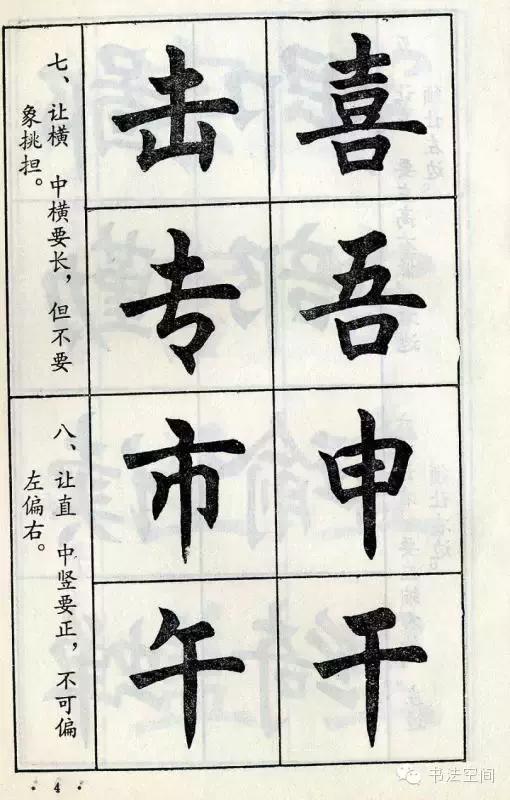 喜 击
吾 专
七、让横 中横要长，但不要
象挑担。
申 市
干 午
八、让直 中竖要正，不可偏
左偏右。
·4·
书法空间